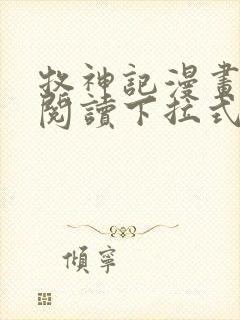 牧神記漫畫
閱讀下拉式
傾寧